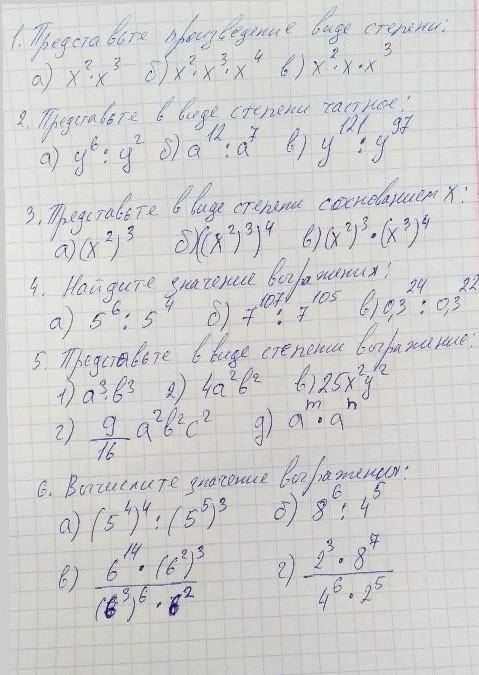 1. Представьте произведение виде степени:
а) x²·x³ б) x²·x³·x⁴ в) x²·x·x³
2. Представьте в виде степени частное:
а) y⁶ : y² б) a¹² : a⁷ в) y¹²¹ : y⁹⁷
3. Представьте в виде степени с основанием x:
а) (x²)³ б) ((x²)³)⁴ в) (x²)³·(x³)⁴
4. Найдите значение выражения:
а) 5⁶ : 5⁴ б) 7¹⁰⁷ : 7¹⁰⁵ в) 0,3²⁴ : 0,3²²
5. Представьте в виде степени выражение:
1) a³·b³ 2) 4a²b² в) 25x²y²
г) 9/16 a²b²c² д) aᵐ·aⁿ
6. Вычислите значение выражения:
а) (5⁴)⁴ : (5⁵)³ б) 8⁶ : 4⁵
в) 6¹⁴·(6²)³ / (6³)⁶·6² г) 2³·8⁷ / 4⁶·2⁵